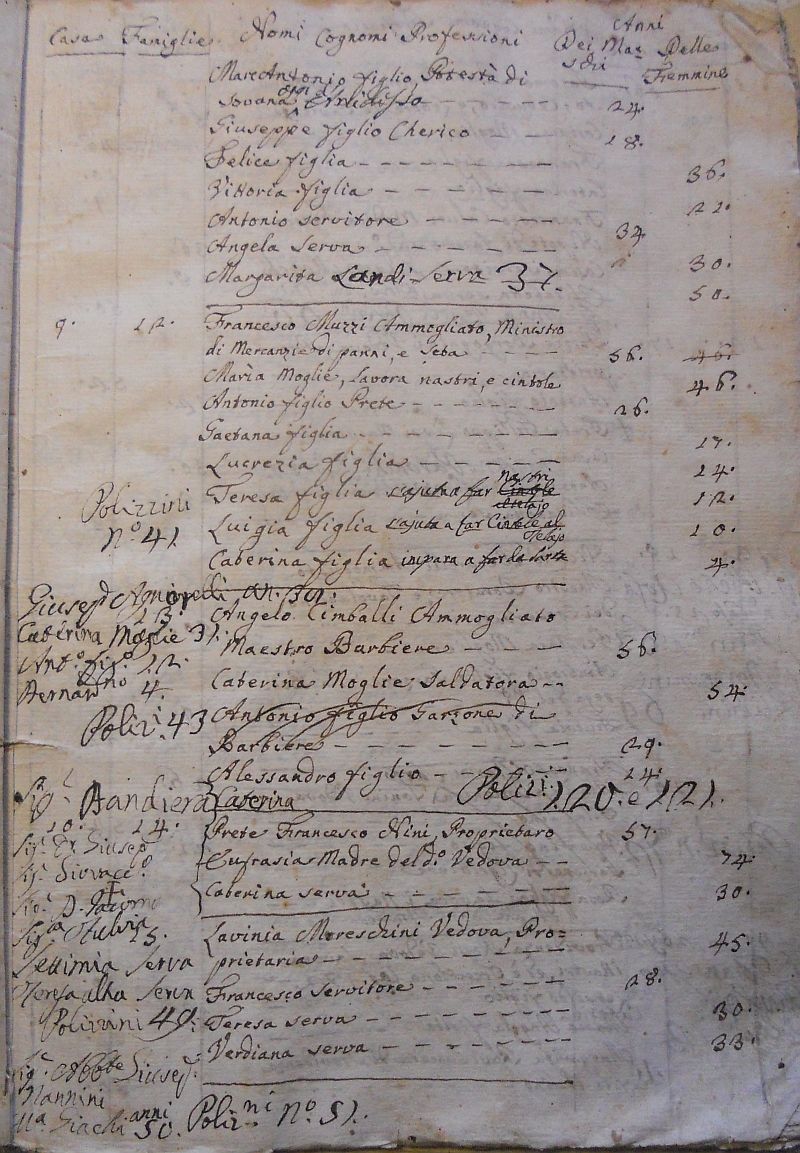 Case Famiglie Nomi Cognomi Professioni Anni
Dei Maschi Delle Femmine
MarcAntonio figlio Potestà di
Sovana
24.
Giuseppe figlio Cherico 18.
Felice figlia 36.
Vittoria figlia 22.
Antonio servitore 34
Angela Serva 30.
Margarita Landi Serva 37. 50.
9. 12. Francesco Muzzi Ammogliato, Ministro
di Mercanzie di panni, e seta 56. 46.
Maria Moglie, Lavora nastri, e cintole 46.
Antonio figlio Prete 26.
Gaetana figlia 17.
Lucrezia figlia 14.
nastri
Teresa figlia s'ajuta a far Cintole 12.
al telajo
Luigia figlia s'ajuta a far Cintole al 10.
Telajo
Caterina figlia impara a far 4.
Polizzini
Nº 41
Giusep.
Caterina Moglie 31.
Ant.º fig.º 12.
4.
Poliz.i 43
13. Angelo Cimballi Ammogliato
Maestro Barbiere 56.
Caterina Moglie Saldatora 54.
Antonio figlio Garzone di
Barbiere 29.
Alessandro figlio 24.
Caterina
Poliz.i 120. e 121.
Bandiera
10. 14. Prete Francesco Nini, Proprietaro 57.
Eufrasia Madre del d.º Vedova 74.
Caterina serva 30.
15. Lavinia Moreschini Vedova, Pro=
prietaria 45.
Francesco servitore 28.
Teresa serva 30.
Verdiana serva 33.
Settimia Serva
Teresa altra Serva
Polizini 49.
Abb.te Giusep.
Nannini
anni
50. Poliz.ni Nº 51.